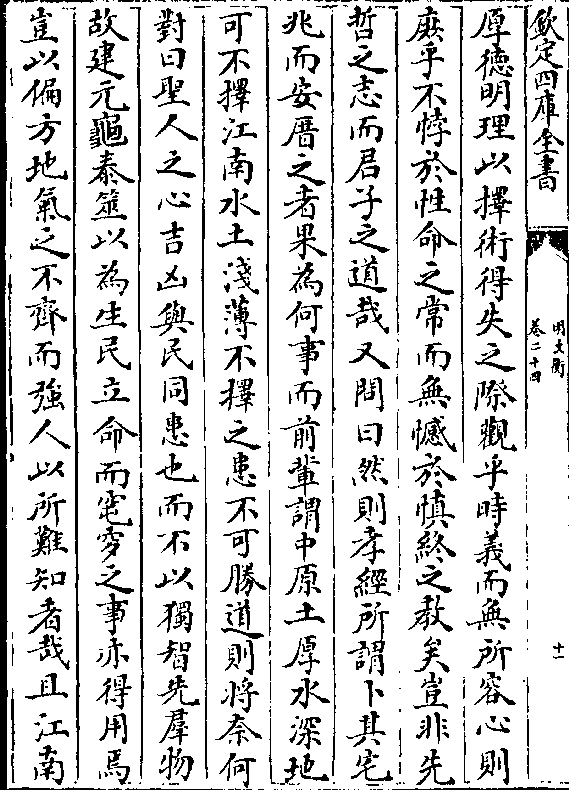 欽定四庫全書
明文衡
卷二十四
十一
厚德明理以擇術得失之際觀乎時義而無所容心則
庶乎不悖於性命之常而無憾於慎終之教矣豈非先
哲之志而君子之道哉又問曰然則孝經所謂卜其宅
兆而安厝之者果為何事而前輩謂中原土厚水深地
可不擇江南水土淺薄不擇之患不可勝道則將奈何
對曰聖人之心吉凶與民同患也而不以獨智先羣物
故建元龜泰筮以為生民立命而窀穸之事亦得用焉
豈以偏方地氣之不齊而強人以所難知者哉且江南